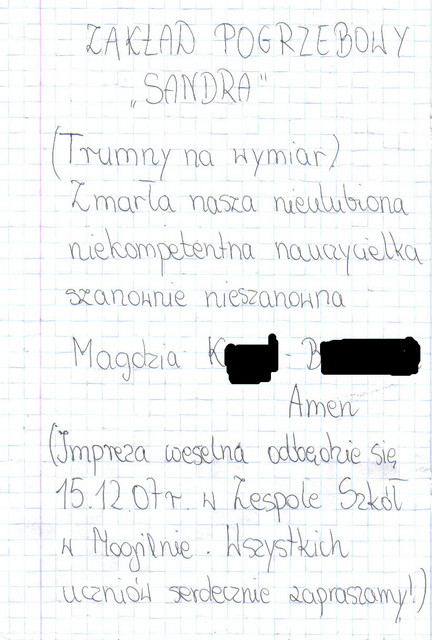 ZAKŁAD POGRZEBOWY
„SANDRA"
(Trumny na wymiar)
Zmarła nasza nieulubiona
niekompetentna nauczycielka
szanownie nieszanowna
Magdzia K - B
Amen
(Impreza weselna odbędzie się
15.12.07r. w Zespole Szkół
w Mogilnie. Wszystkich
uczniów serdecznie zapraszamy!)